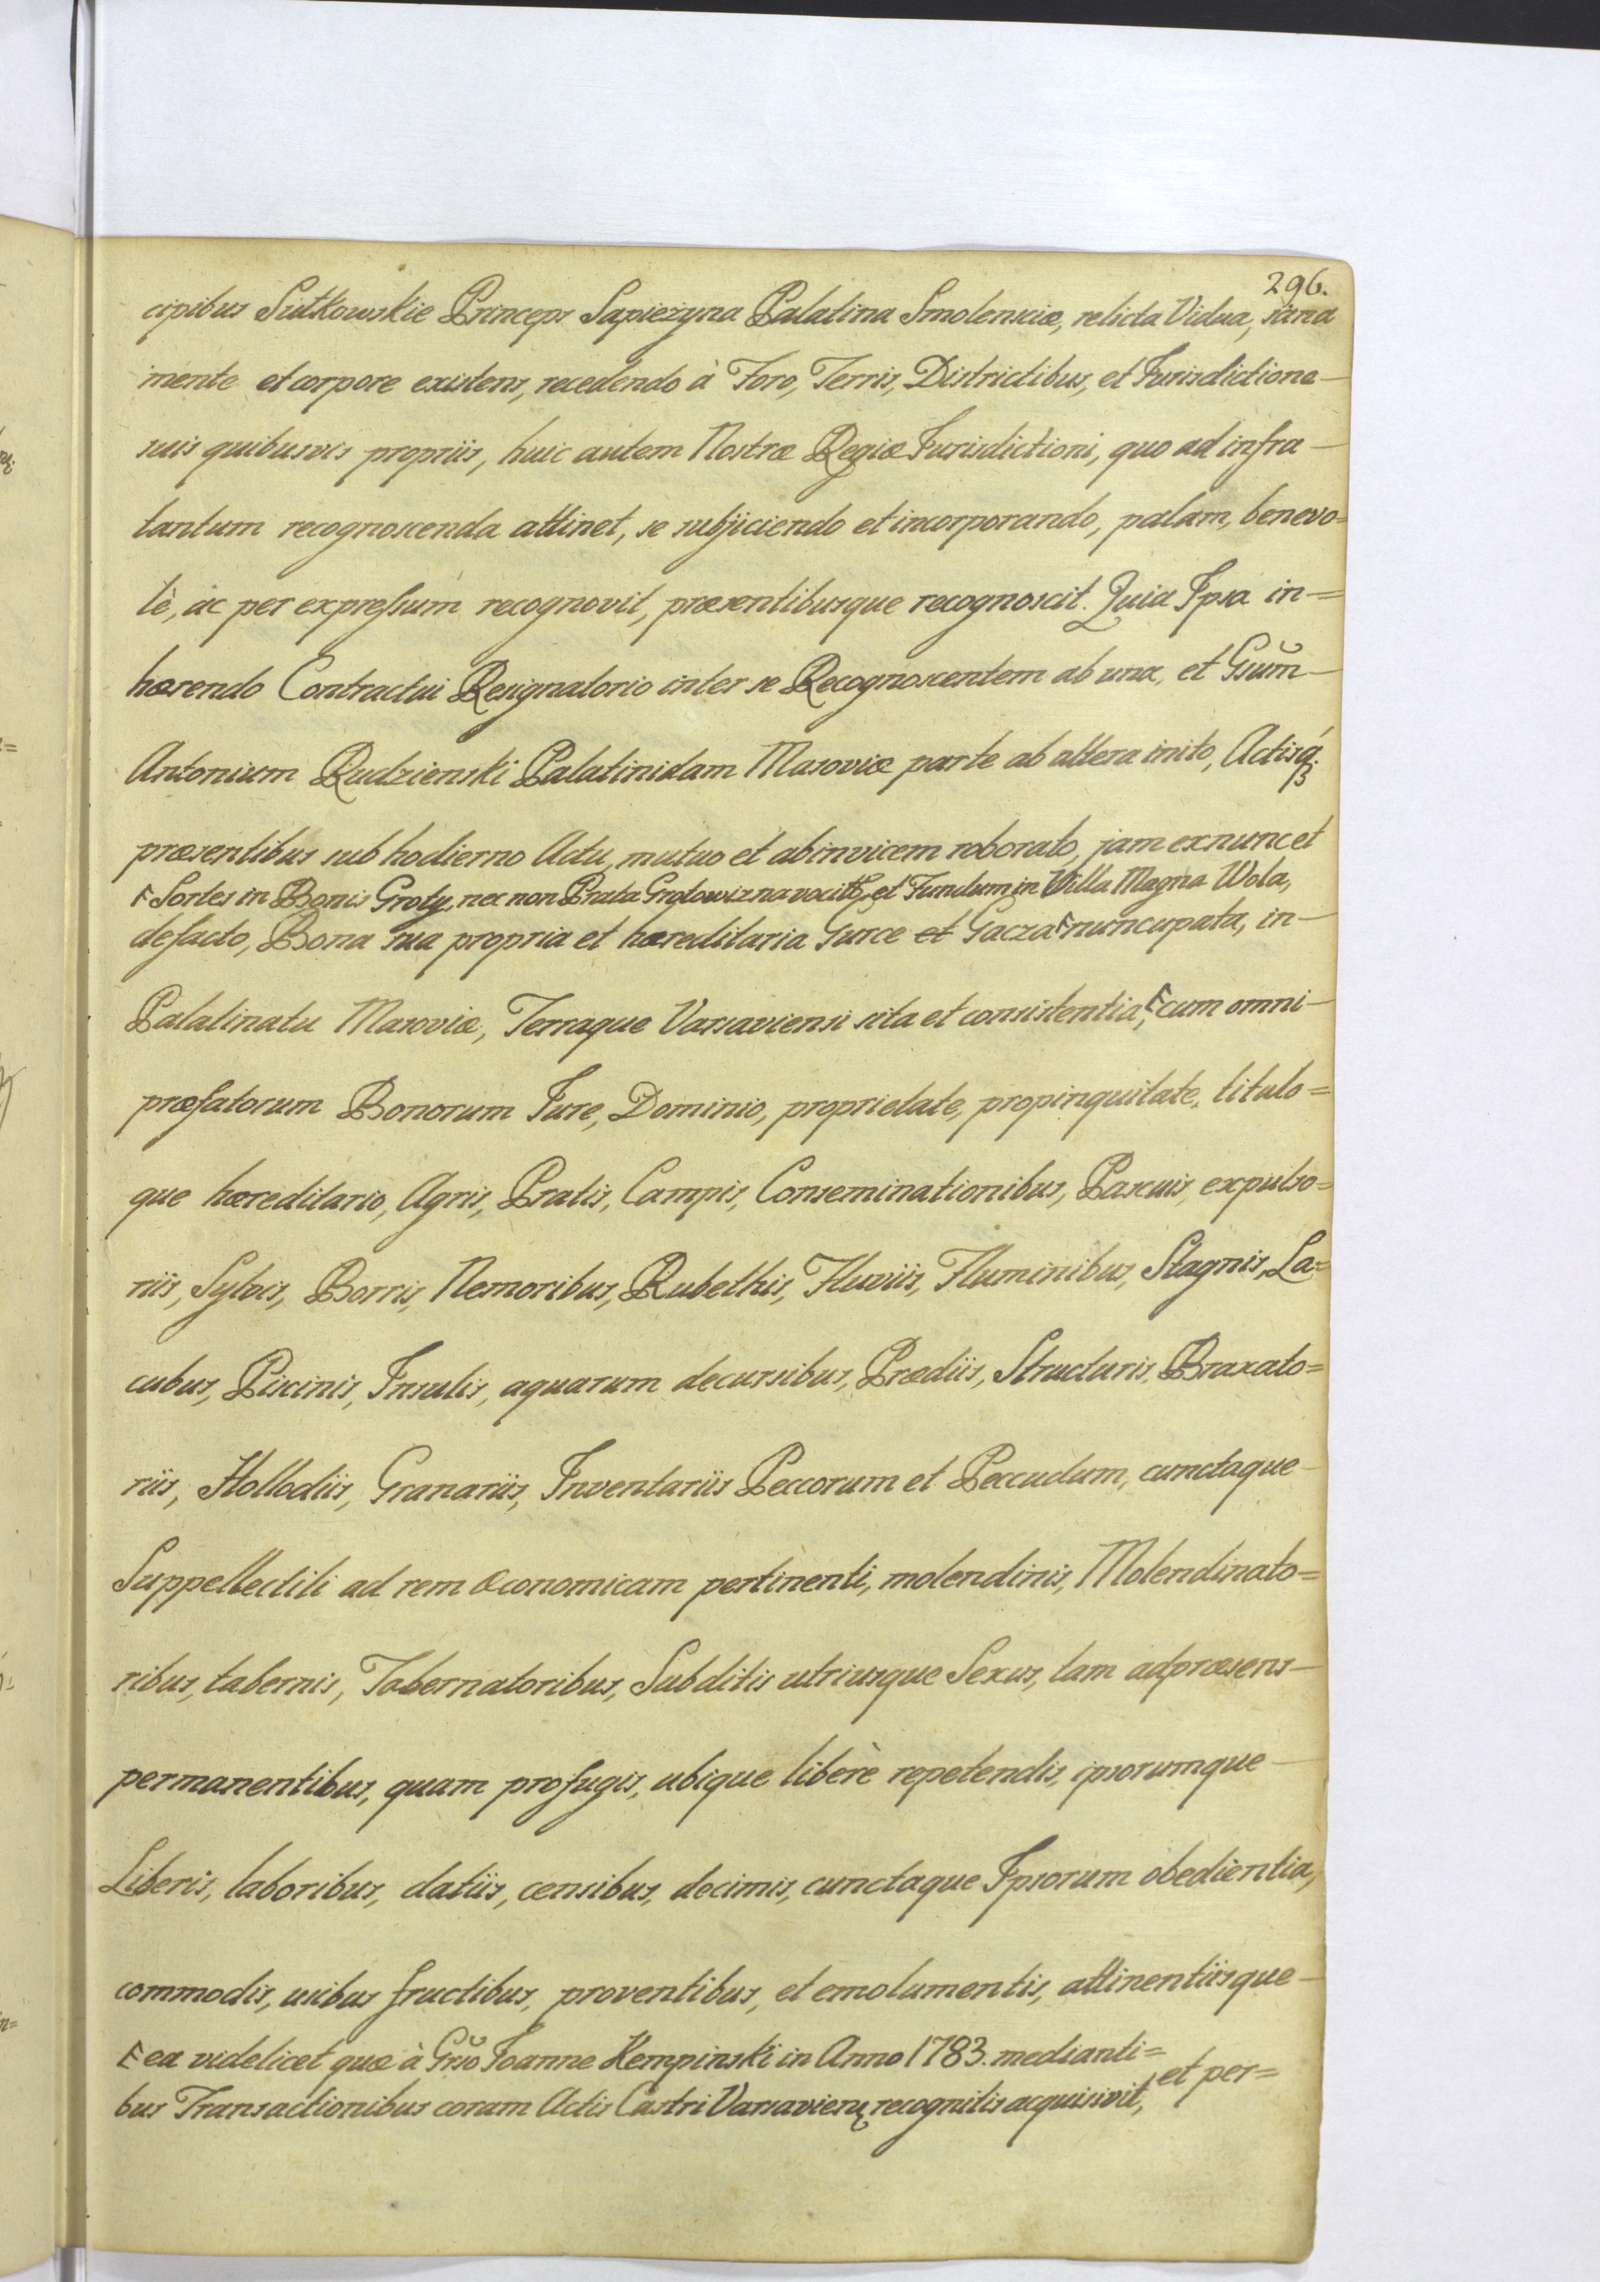 296.
cipibus Sułkowskie Princeps Sapieżyna Palatina Smolensciæ, relicta Vidua, sana
mente et corpore existens, recedendo à Foro, Terris, Districtibus, et Jurisdictione—
suis quibusvis propriis, huic autem Nostræ Regiæ Jurisdictioni, quo ad infra—
tantum recognoscenda attinet, se subjiciendo et incorporando, palam, benevo=
lè, ac per expressum recognovit, præsentibusque recognoscit. Quia Ipsa in=
hærendo Contractui Resignatorio inter se Recognoscentem ab una, et Gsum̃—
Antonium Rudzienski Palatinidam Masoviæ parte ab altera inito, Actisq;
præsentibus sub hodierno Actu, mutuo et abinvicem roborato, jam exnunc et
⊢ Sortes in Bonis Groty, nec non Prata Grotowizna vocit̃, et Fundum in Villa Magna Wola,
defacto, Bona sua propria et hæreditaria Gurce et Gacza ⊢ nuncupata, in—
Palatinatu Masoviæ, Terraque Varsaviensi sita et consistentia, ⊢ cum omni—
præfatorum Bonorum Jure, Dominio, proprietate, propinquitate, titulo=
que hæreditario, Agris, Pratis, Campis, Conseminationibus, Pascuis, expulso=
riis, Sylvis, Borris, Nemoribus, Rubethis, Fluviis, Fluminibus, Stagnis, La=
cubus, Piscinis, Insulis, aquarum decursibus, Prædiis, Structuris, Braxato=
riis, Hollodiis, Granariis, Inventariis Peccorum et Peccudum, cunctaque—
Suppellectili ad rem œconomicam pertinenti, molendinis, Molendinato=
ribus, tabernis, Tabernatoribus, Subditis utriusque Sexus, tam adpræsens—
permanentibus, quam profugis, ubique liberè repetendis, ipsorumque—
Liberis, laboribus, datiis, censibus, decimis, cunctaque Ipsorum obedientia,
commodis, usibus fructibus, proventibus, et emolumentis, attinentiisque—
⊢ ea videlicet quæ à Gsõ Joanne Kempinski in Anno 1783. medianti=
bus Transactionibus coram Actis Castri Varsavien recognitis acquisivit,
et per=